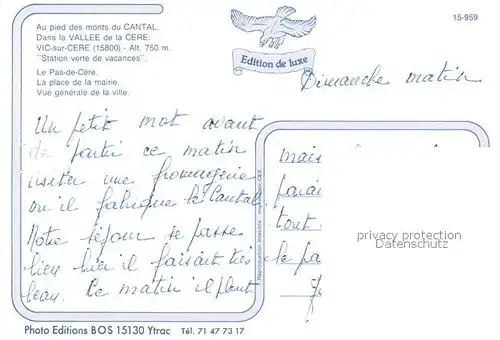 Au pied des monts du CANTAL,
Dans la VALLEE de la CERE:
VIC-sur-CERE (15800) - Alt. 750 m.
"Station verte de vacances".
Le Pas-de-Cère.
La place de la mairie.
Vue générale de la ville.
Edition de luxe
15-959
Dimanche matin
Un petit mot avant
de partir ce matin
visiter une fromagerie
où il fabrique le Cantal.
Notre séjour se passe
bien hier il faisait très
beau. Ce matin il pleut
mais
tout
le pa
Reproduction interdite
privacy protection
Datenschutz
Photo Editions BOS 15130 Ytrac Tél. 71 47 73 17